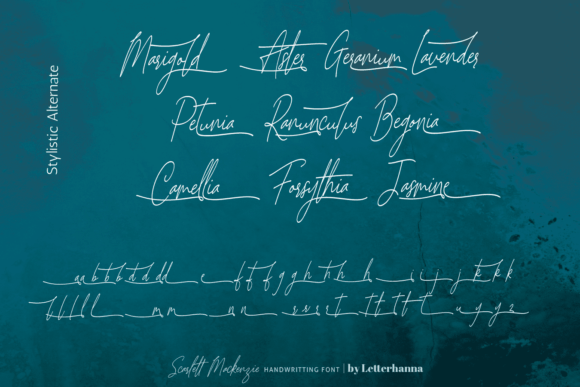 Stylistic Alternate
Marigold Aster Geranium Lavender
Petunia Ranunculus Begonia
Camellia Forsythia Jasmine
Scarlett Mackenzie HANDWRITTING FONT | by Letterhanna